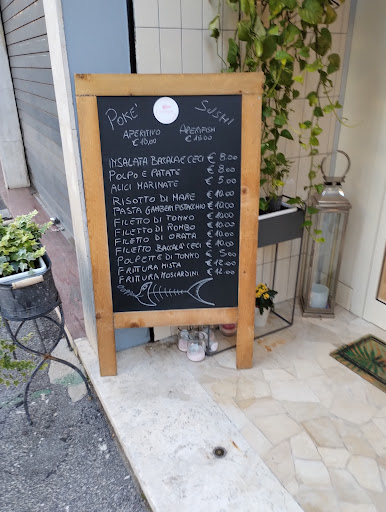 POKE' SUSHI
APERITIVO APERIFISH
€ 10,00 € 18,00
INSALATA BACCALA' E CECI € 8.00
POLPO E PATATE € 8.00
ALICI MARINATE € 5.00
RISOTTO DI MARE € 10.00
PASTA GAMBERI PISTACCHIO € 10.00
FILETTO DI TONNO € 10.00
FILETTO DI ROMBO € 10.00
FILETTO DI ORATA € 10.00
FILETTO BACCALA' E CECI € 10.00
POLPETTE DI TONNO € 5.00
FRITTURA MISTA € 12.00
FRITTURA MOSCARDINI € 12.00